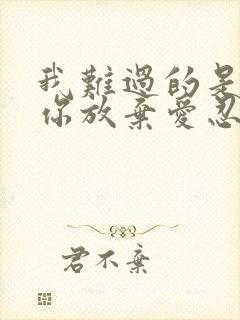 我難過的是
你放棄愛忍
君不棄